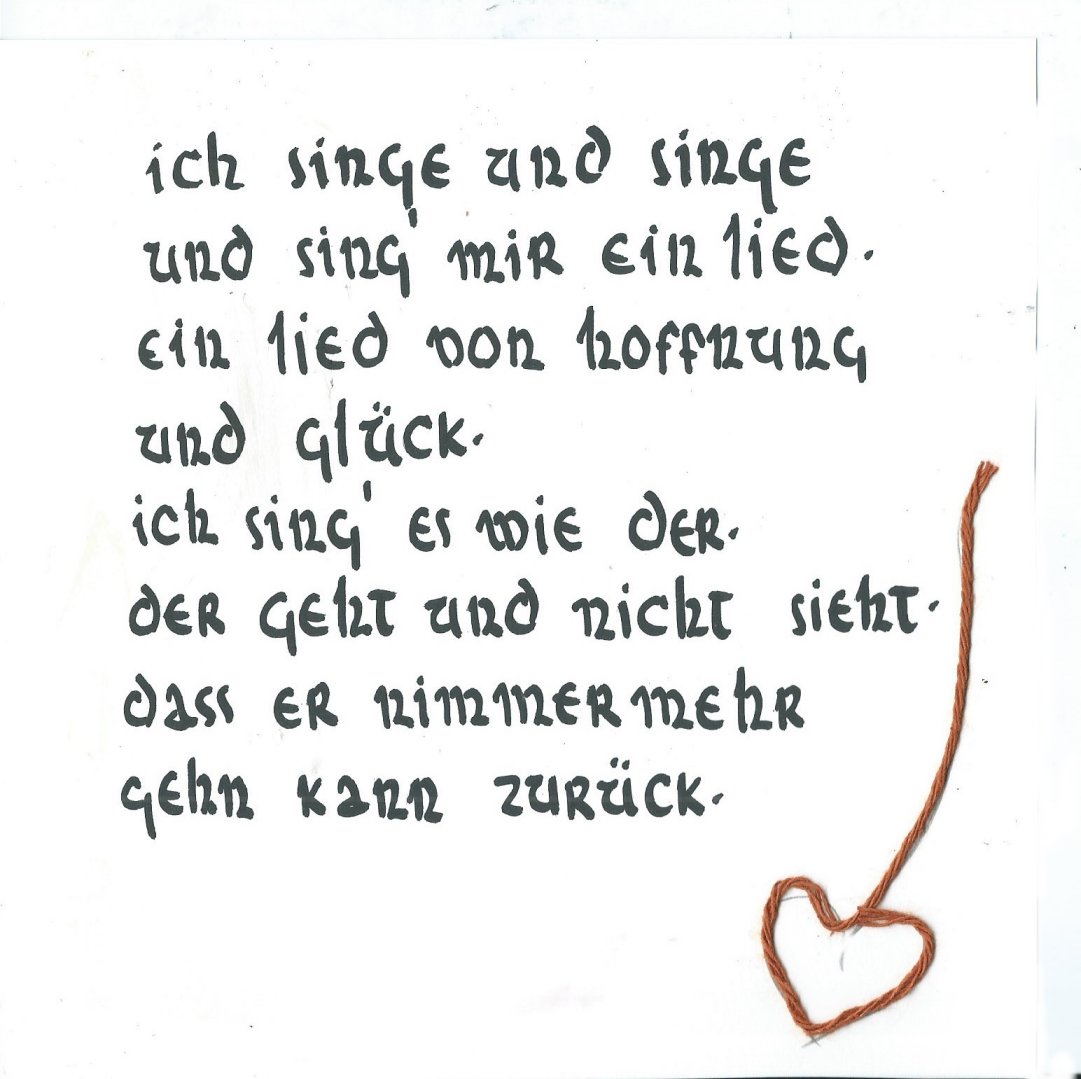 ich singe und singe
und sing' mir ein lied.
ein lied von hoffnung
und glück.
ich sing' es wie der.
der geht und nicht sieht.
dass er nimmermehr
gehn kann zurück.